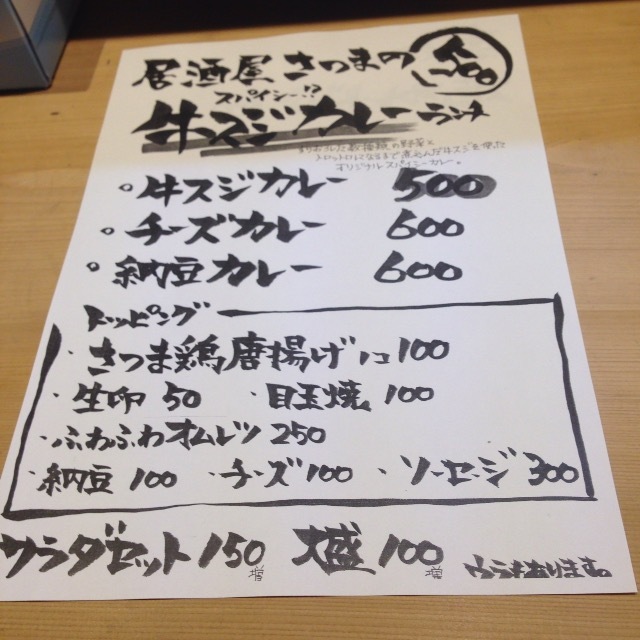 居酒屋 さつまの
スパイシー!?
牛スジカレーランチ
すりおろした数種類の野菜と
トロットロになるまで煮込んだ牛スジを使った
オリジナルスパイシーカレー。
。牛スジカレー 500
。チーズカレー 600
。納豆カレー 600
トッピング
・さつま鶏唐揚げ1コ100
・生卵 50 ・目玉焼 100
・ふわふわオムレツ 250
・納豆 100 ・チーズ100 ・ソーセージ 300
サラダセット 150増 大盛 100増